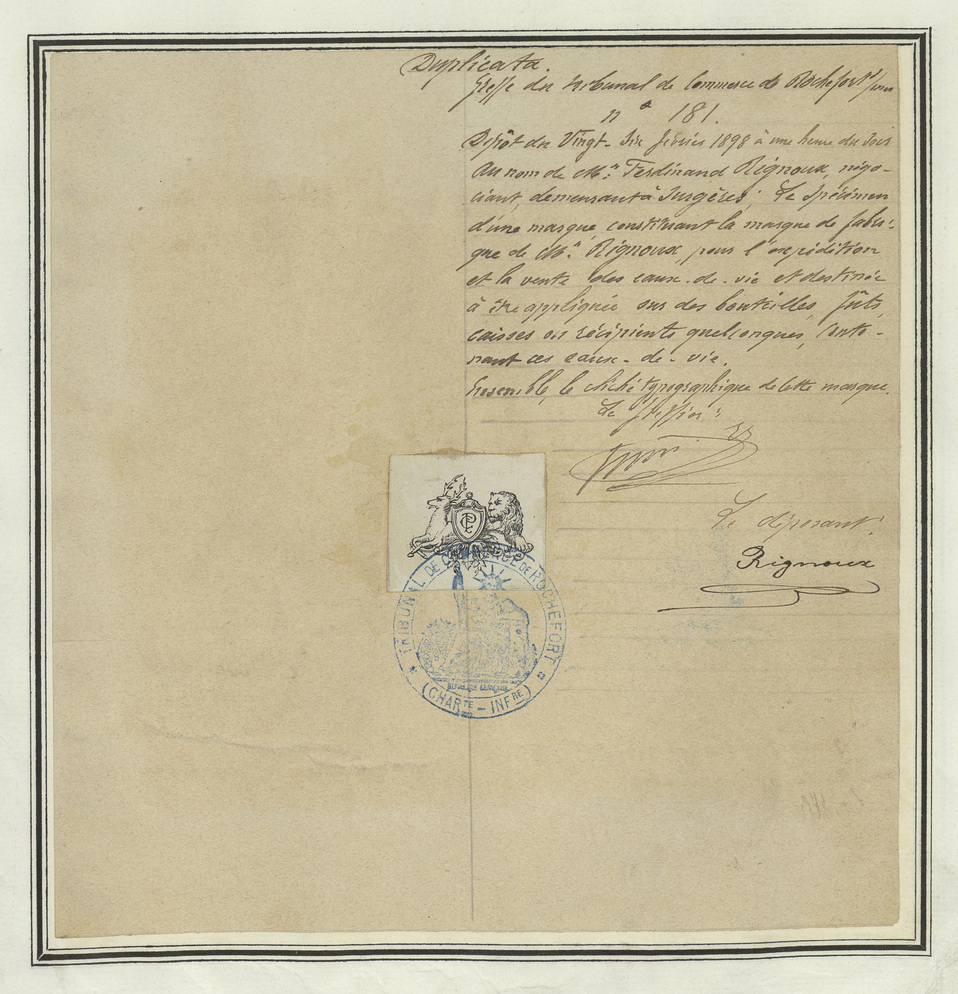 Duplicata.
Greffe du tribunal de Commerce de Rochefort s/mer
n° 181.
Dépôt du Vingt-Six février 1898 à une heure du soir
Au nom de Mr. Ferdinand Rignoux, négo-
ciant, demeurant à Surgères; Le Spécimen
d'une marque, constituant la marque de fabri-
que de Mr. Rignoux, pour l'expédition
et la vente des eaux-de-vie et destinée
à être appliquée sur des bouteilles, fûts,
caisses ou récipients quelconques, conte-
nant ces eaux-de-vie.
Ensemble, le cliché typographique de cette marque.
Le Greffier:
Le déposant:
Rignoux
TRIBUNAL DE COMMERCE DE ROCHEFORT
RÉPUBLIQUE FRANÇAISE
(CHARTE - INFRE)